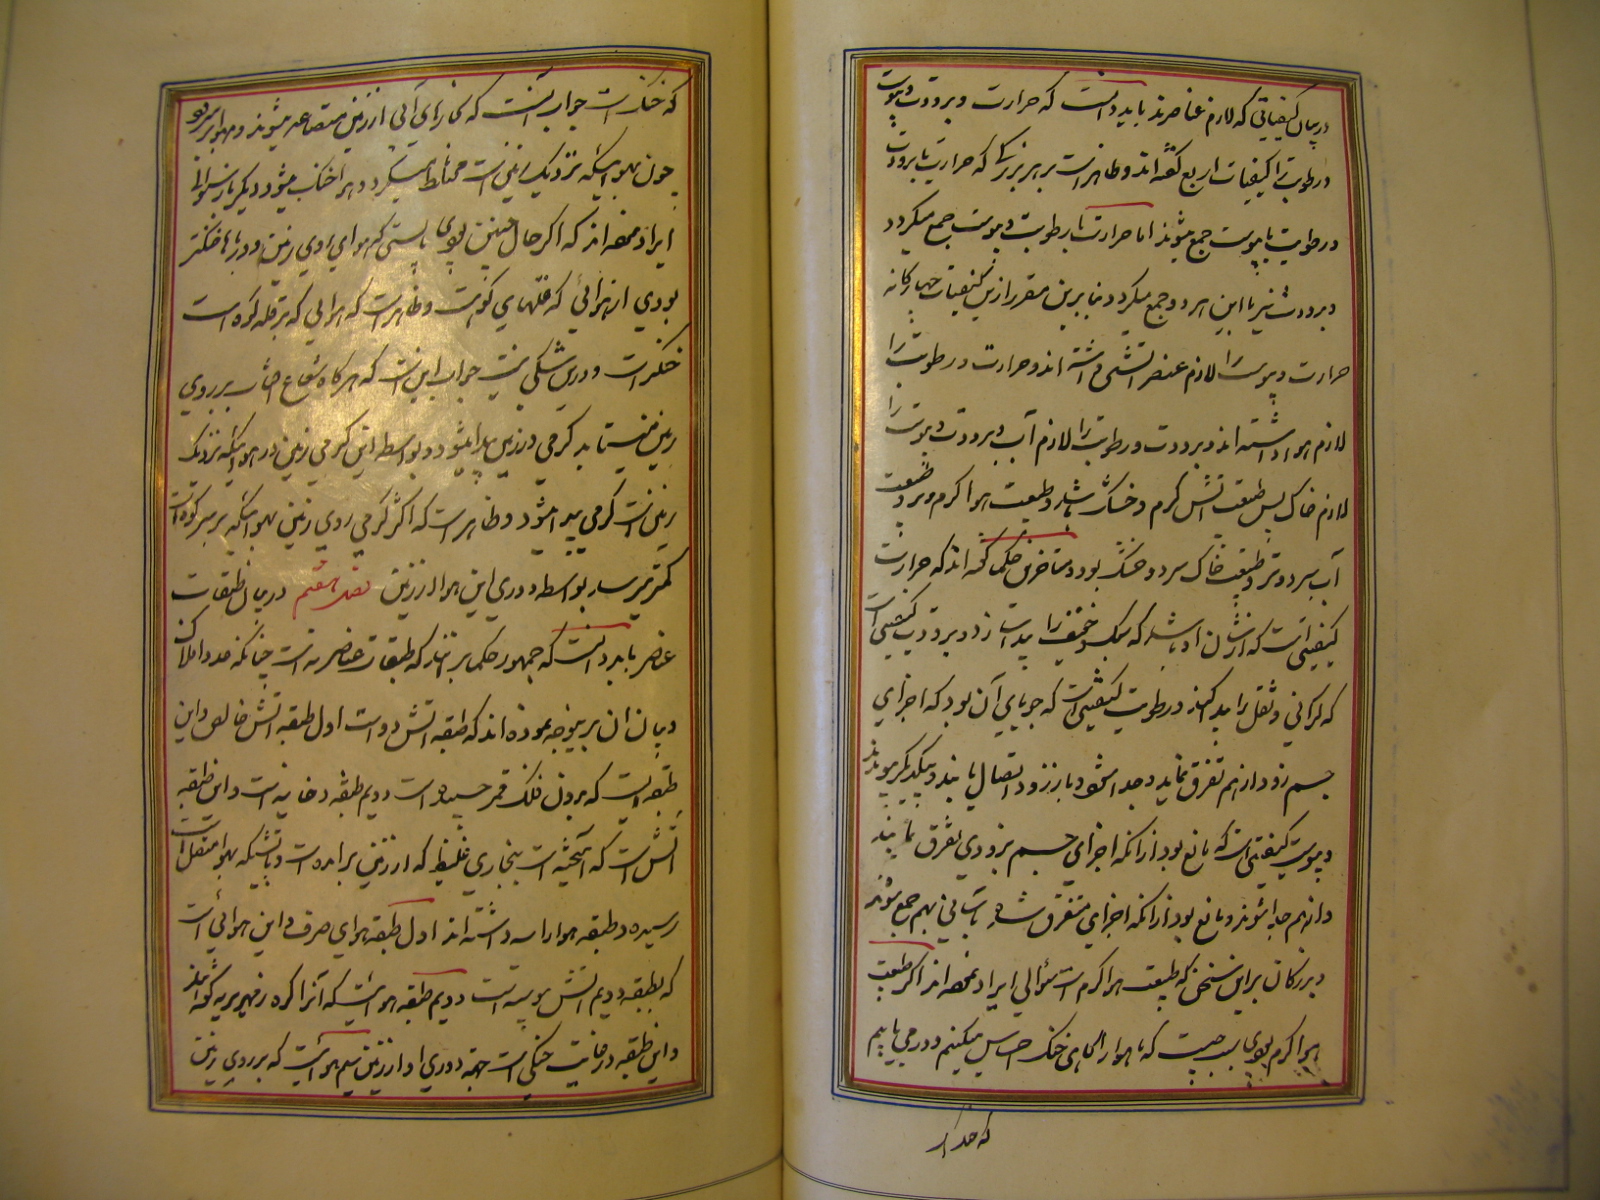 در بیان کیفیاتی که لازم عناصرند باید دانست که حرارت و برودت و یبوست
و رطوبت را کیفیات اربع گفته اند و ظاهرست بر هر بزرگی که حرارت با برودت
و رطوبت با یبوست جمع نمیشوند اما حرارت با رطوبت و یبوست جمع میگردد
و برودت نیز با این هر دو جمع میگردد بنابرین مقرر ازین کیفیات چهارگانه
حرارت و یبوست را لازم عنصر آتشی داشته اند و حرارت و رطوبت را
لازم هوا داشته اند و برودت و رطوبت را لازم آب و برودت و یبوست را
لازم خاک پس طبیعت آتش گرم و خشک باشد و طبیعت هوا گرم و تر و طبیعت
آب سرد و تر و طبیعت خاک سرد و خشک بود و متاخرین حکما گفته اند که حرارت
کیفیتی است که از شان او باشد که سبکی و خفت را پیدا سازد و برودت کیفیتی است
که گرانی و ثقل را پیدا کند و رطوبت کیفیتی است که جویای آن بود که اجزای
جسم زود از هم تفرق نماید و جدا شود و باز زود اتصال یابند و بیکدیگر پیوندند
و یبوست کیفیتی است که مانع بود از آنکه اجزای جسم بزودی تفرق نمایند
و از هم جدا شوند و مانع بود از آنکه اجزای متفرق شده بآسانی بهم جمع شوند
و بزرگان براین سخن که طبیعت هوا گرم است سؤالی ایراد نموده اند اگر طبیعت
هوا گرم بودی سبب چیست که ما هوا را گاهی خنک احساس میکنیم و درمی یابیم
که خنک است جواب آنست که بخارهای آبی از زمین متصاعد میشوند و هوا بسردی
چون بهوائیکه نزدیک زمین است مختلط میگردد هوا خنک میشود دیگر باز سؤالی
ایراد نموده اند که اگر حال چنین بودی بایستی که هوای روی زمین و دریاها خنکتر
بودی از هوائی که قلهای کوهست و ظاهرست که هوایی که بر قله کوه است
خنکتر است و درین شکی نیست جواب این است که هرگاه شعاع آفتاب بر روی
زمین میتابد گرمی در زمین پیدا میشود و بواسطه این گرمی زمین در هوائیکه نزدیک
زمین است گرمی پیدا میشود و ظاهرست که اکثر گرمی روی زمین بهوائیکه بر سر کوه است
کمتر میرسد بواسطه دوری این هوا از زمین فصل هفتم در بیان طبقات
عناصر باید دانست که جمهور حکما برآنند که طبقات عناصر نه است چنانکه عدد افلاک
و بیان آن برینوجه نموده اند که طبقه آتش دو است اول طبقه آتش خالص و این
طبقه ایست که بدرون فلک قمر چسپیده است دویم طبقه دخانیه است و این طبقه
آتش است که آمیخته است ببخاری غلیظ که از زمین برآمده است و بآتشیکه بهوا متصل است
رسیده و طبقه هوا را سه داشته اند اول طبقه هوای صرف و این هوائی است
که بطبقه دویم آتش پیوسته است دویم طبقه هوائیست که آنرا کره زمهریریه گویند
و این طبقه در غایت خنکی است جهة دوری او از زمین سیم هوائیست که بر روی زمین
که خنک است